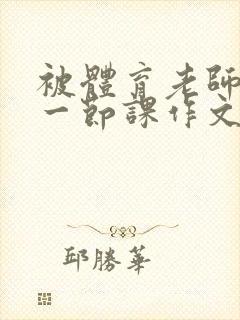 被體育老師
一節課作文
邱勝華